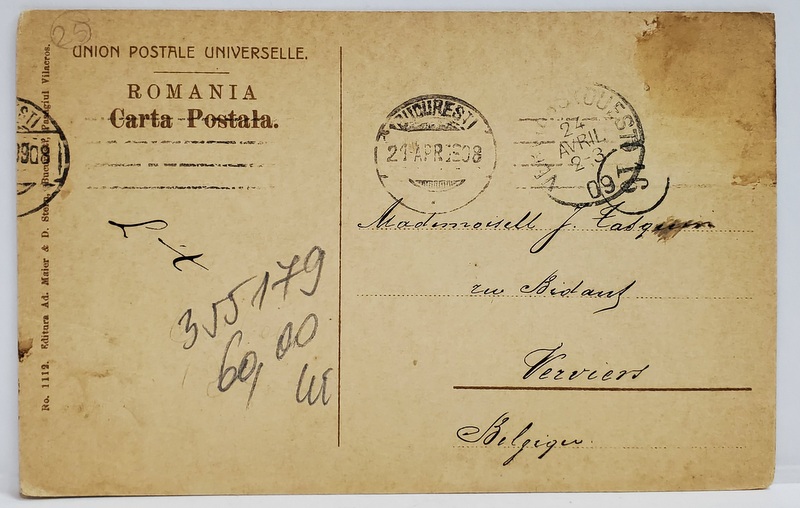 25
UNION POSTALE UNIVERSELLE.
ROMANIA
Carta Postala.
Ro. 1112. Editura Ad. Maier & D. Stern, Bucuresti, Pasagiul Vilacros.
BUCURESTI
21 APR 1908
24
AVRIL
2-3
09
Mademoiselle J.
rue Bidaut
Verviers
Belgique
355179
60,00